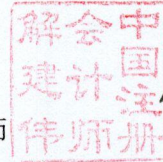 中国注册
会计师
解建伟